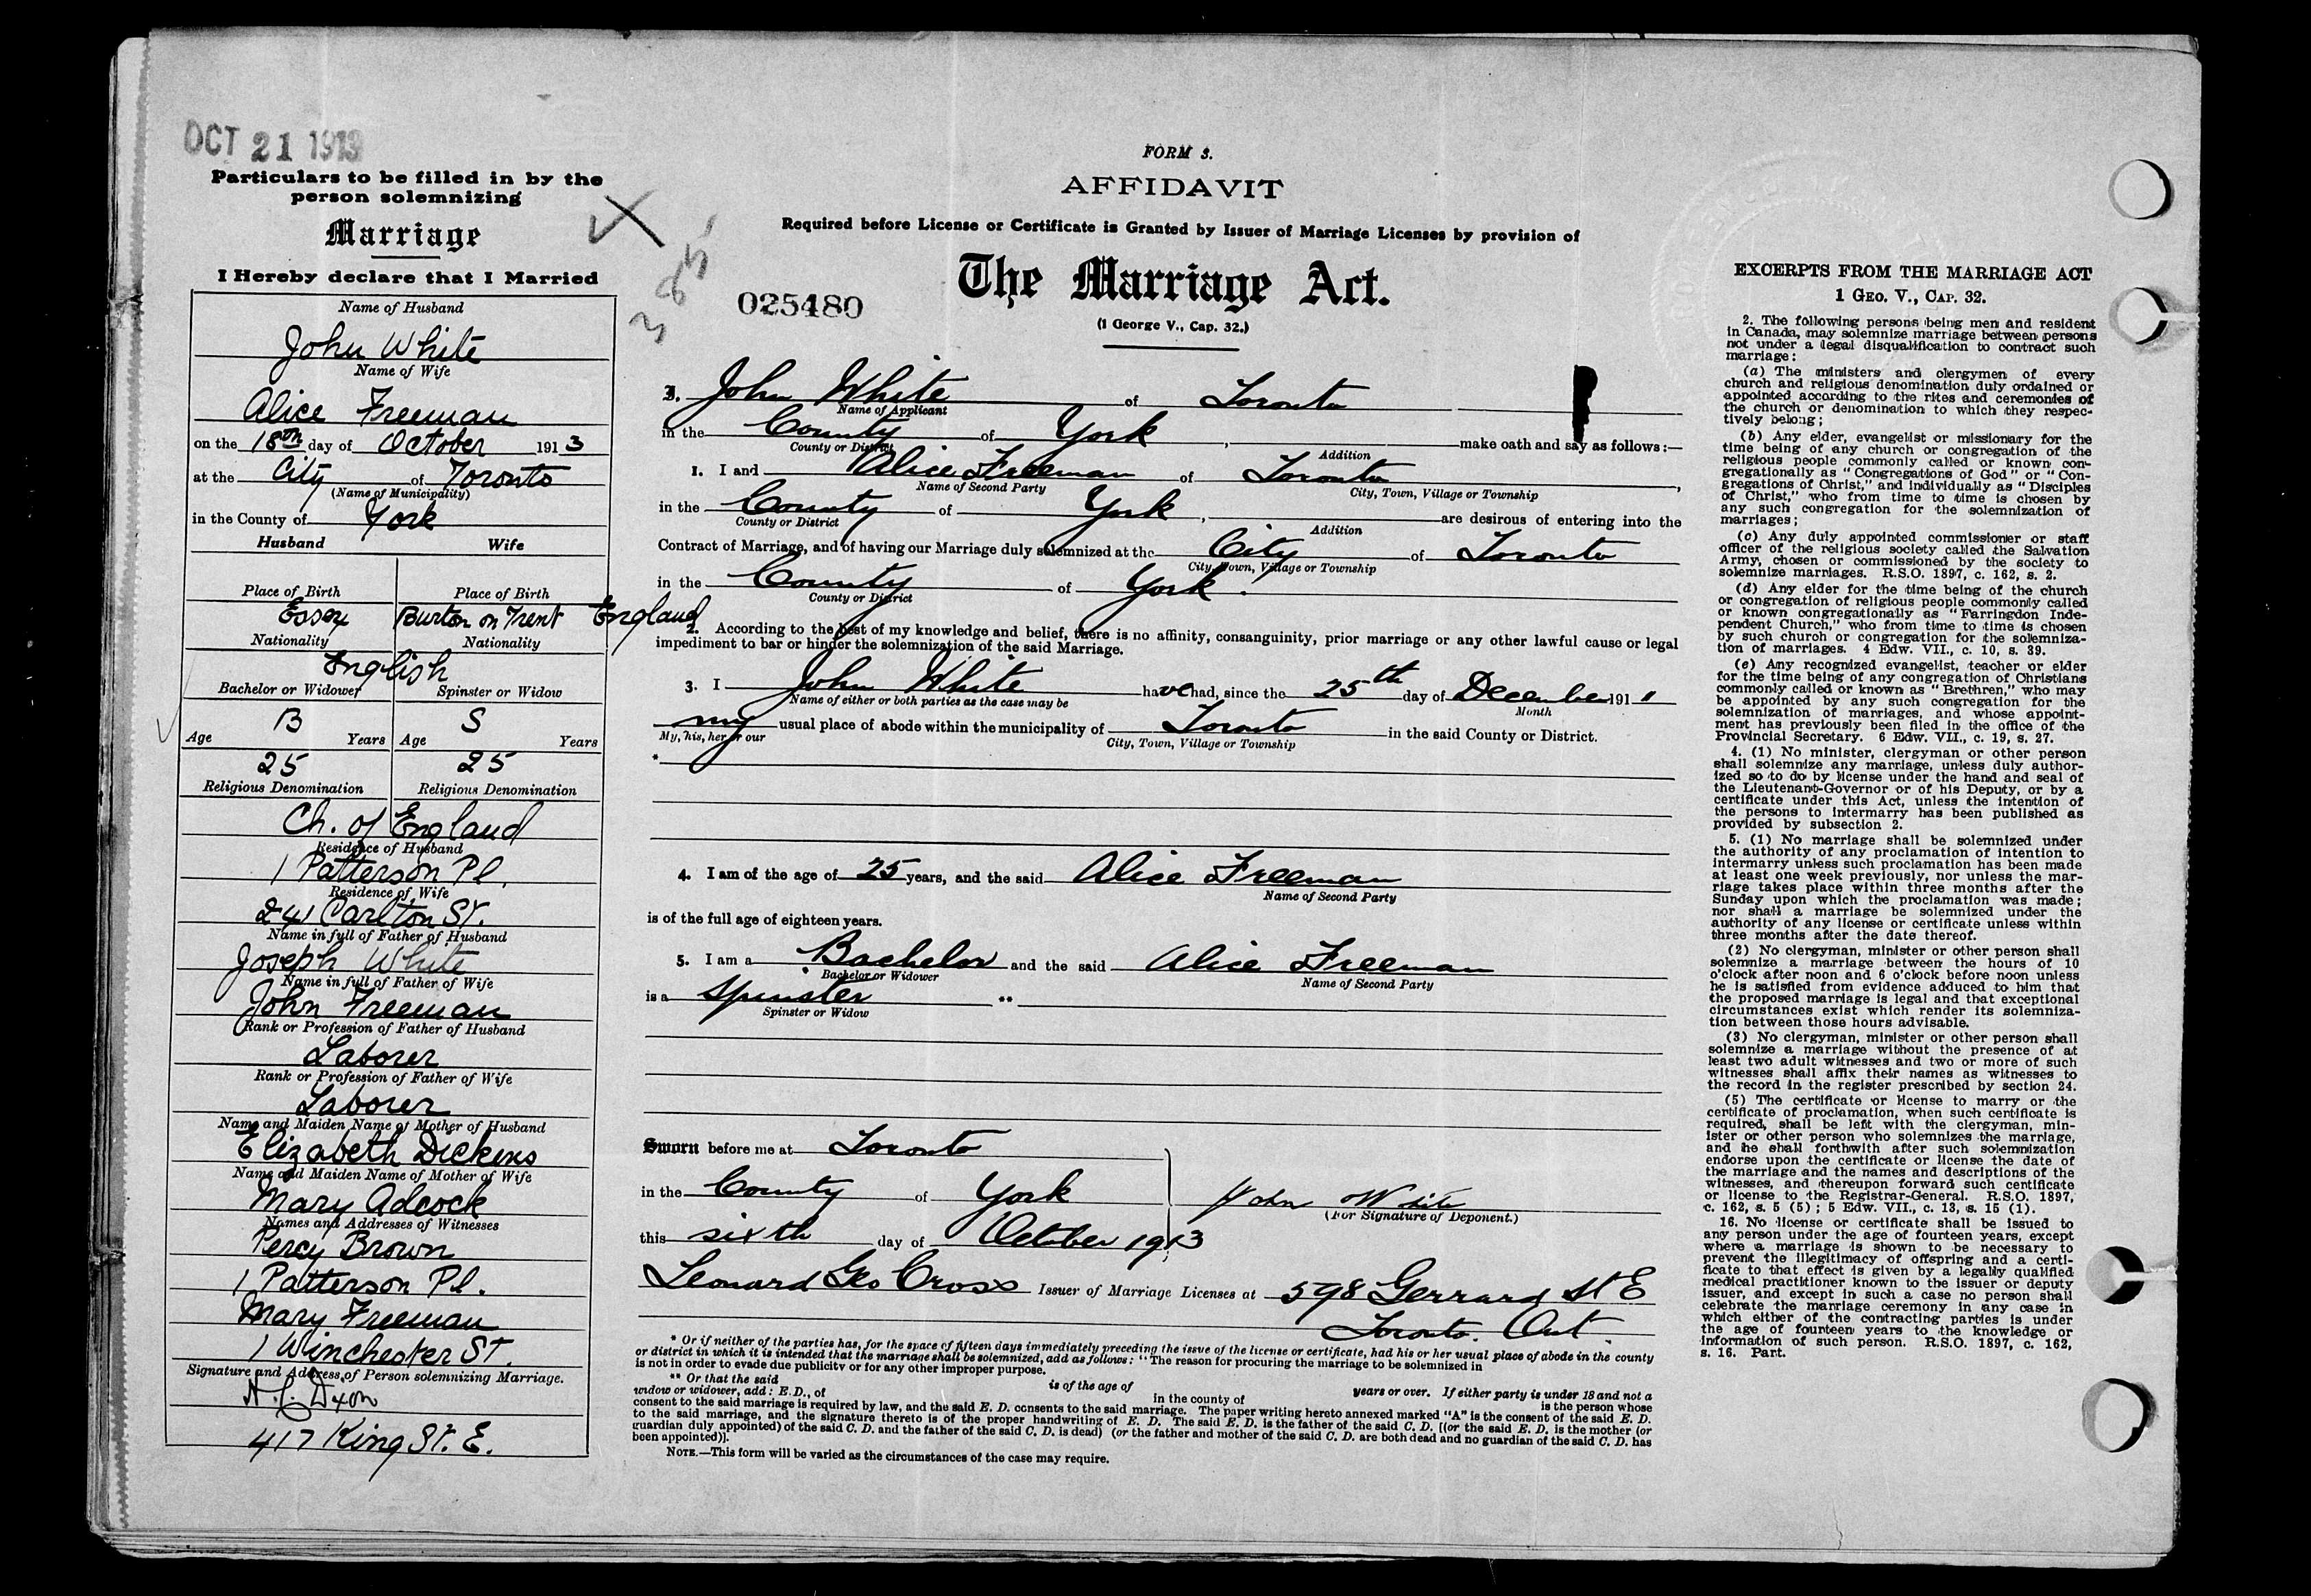 OCT 21 1913
Particulars to be filled in by the
person solemnizing
Marriage
I Hereby declare that I Married
Name of Husband
John White
Name of Wife
Alice Freeman
on the 18th day of October 1913
at the City of Toronto
(Name of Municipality)
in the County of York
Husband Wife
Place of Birth Place of Birth
Essex Burton on Trent England
Nationality Nationality
English
Bachelor or Widower Spinster or Widow
B S
Age Years Age Years
25 25
Religious Denomination Religious Denomination
Ch. of England
Residence of Husband
1 Patterson Pl.
Residence of Wife
241 Carlton St.
Name in full of Father of Husband
Joseph White
Name in full of Father of Wife
John Freeman
Rank or Profession of Father of Husband
Laborer
Rank or Profession of Father of Wife
Laborer
Name and Maiden Name of Mother of Husband
Elizabeth Dickens
Name and Maiden Name of Mother of Wife
Mary Adcock
Names and Addresses of Witnesses
Percy Brown
1 Patterson Pl.
Mary Freeman
1 Winchester St.
Signature and Address of Person solemnizing Marriage.
Dixon
417 King St. E.
385
FORM 3.
AFFIDAVIT
Required before License or Certificate is Granted by Issuer of Marriage Licenses by provision of
The Marriage Act.
025480
(1 George V., Cap. 32.)
I. John White of Toronto
Name of Applicant
in the County of York, make oath and say as follows:—
County or District Addition
1. I and Alice Freeman of Toronto,
Name of Second Party City, Town, Village or Township
in the County of York, are desirous of entering into the
County or District Addition
Contract of Marriage, and of having our Marriage duly solemnized at the City of Toronto
City, Town, Village or Township
in the County of York.
County or District
2. According to the best of my knowledge and belief, there is no affinity, consanguinity, prior marriage or any other lawful cause or legal
impediment to bar or hinder the solemnization of the said Marriage.
3. I John White have had, since the 25th day of December 1911
Name of either or both parties as the case may be Month
my usual place of abode within the municipality of Toronto in the said County or District.
My, his, her or our City, Town, Village or Township
*
4. I am of the age of 25 years, and the said Alice Freeman
Name of Second Party
is of the full age of eighteen years.
5. I am a Bachelor and the said Alice Freeman
Bachelor or Widower Name of Second Party
is a Spinster **
Spinster or Widow
Sworn before me at Toronto
in the County of York John White
(For Signature of Deponent.)
this sixth day of October 1913
Leonard Geo Cross Issuer of Marriage Licenses at 598 Gerrard St E
Toronto. Ont.
* Or if neither of the parties has, for the space of fifteen days immediately preceding the issue of the license or certificate, had his or her usual place of abode in the county
or district in which it is intended that the marriage shall be solemnized, add as follows: "The reason for procuring the marriage to be solemnized in
is not in order to evade due publicity or for any other improper purpose.
** Or that the said is of the age of years or over. If either party is under 18 and not a
widow or widower, add: E. D., of in the county of is the person whose
consent to the said marriage is required by law, and the said E. D. consents to the said marriage. The paper writing hereto annexed marked "A" is the consent of the said E. D.
to the said marriage, and the signature thereto is of the proper handwriting of E. D. The said E. D. is the father of the said C. D. [(or the said E. D. is the mother (or
guardian duly appointed) of the said C. D. and the father of the said C. D. is dead) (or the father and mother of the said C. D. are both dead and no guardian of the said C. D. has
been appointed)].
NOTE.—This form will be varied as the circumstances of the case may require.
EXCERPTS FROM THE MARRIAGE ACT
1 GEO. V., CAP. 32.
2. The following persons being men and resident
in Canada, may solemnize marriage between persons
not under a legal disqualification to contract such
marriage:
(a) The ministers and clergymen of every
church and religious denomination duly ordained or
appointed according to the rites and ceremonies of
the church or denomination to which they respec-
tively belong;
(b) Any elder, evangelist or missionary for the
time being of any church or congregation of the
religious people commonly called or known con-
gregationally as "Congregations of God" or "Con-
gregations of Christ," and individually as "Disciples
of Christ," who from time to time is chosen by
any such congregation for the solemnization of
marriages;
(c) Any duly appointed commissioner or staff
officer of the religious society called the Salvation
Army, chosen or commissioned by the society to
solemnize marriages. R.S.O. 1897, c. 162, s. 2.
(d) Any elder for the time being of the church
or congregation of religious people commonly called
or known congregationally as "Farringdon Inde-
pendent Church," who from time to time is chosen
by such church or congregation for the solemniza-
tion of marriages. 4 Edw. VII., c. 10, s. 39.
(e) Any recognized evangelist, teacher or elder
for the time being of any congregation of Christians
commonly called or known as "Brethren," who may
be appointed by any such congregation for the
solemnization of marriages, and whose appoint-
ment has previously been filed in the office of the
Provincial Secretary. 6 Edw. VII., c. 19, s. 27.
4. (1) No minister, clergyman or other person
shall solemnize any marriage, unless duly author-
ized so to do by license under the hand and seal of
the Lieutenant-Governor or of his Deputy, or by a
certificate under this Act, unless the intention of
the persons to intermarry has been published as
provided by subsection 2.
5. (1) No marriage shall be solemnized under
the authority of any proclamation of intention to
intermarry unless such proclamation has been made
at least one week previously, nor unless the mar-
riage takes place within three months after the
Sunday upon which the proclamation was made;
nor shall a marriage be solemnized under the
authority of any license or certificate unless within
three months after the date thereof.
(2) No clergyman, minister or other person shall
solemnize a marriage between the hours of 10
o'clock after noon and 6 o'clock before noon unless
he is satisfied from evidence adduced to him that
the proposed marriage is legal and that exceptional
circumstances exist which render its solemniza-
tion between those hours advisable.
(3) No clergyman, minister or other person shall
solemnize a marriage without the presence of at
least two adult witnesses and two or more of such
witnesses shall affix their names as witnesses to
the record in the register prescribed by section 24.
(5) The certificate or license to marry or the
certificate of proclamation, when such certificate is
required, shall be left with the clergyman, min-
ister or other person who solemnizes the marriage,
and he shall forthwith after such solemnization
endorse upon the certificate or license the date of
the marriage and the names and descriptions of the
witnesses, and thereupon forward such certificate
or license to the Registrar-General. R.S.O. 1897,
c. 162, s. 5 (5); 5 Edw. VII., c. 13, s. 15 (1).
16. No license or certificate shall be issued to
any person under the age of fourteen years, except
where a marriage is shown to be necessary to
prevent the illegitimacy of offspring and a certi-
ficate to that effect is given by a legally qualified
medical practitioner known to the issuer or deputy
issuer, and except in such a case no person shall
celebrate the marriage ceremony in any case in
which either of the contracting parties is under
the age of fourteen years to the knowledge or
information of such person. R.S.O. 1897, c. 162,
s. 16. Part.